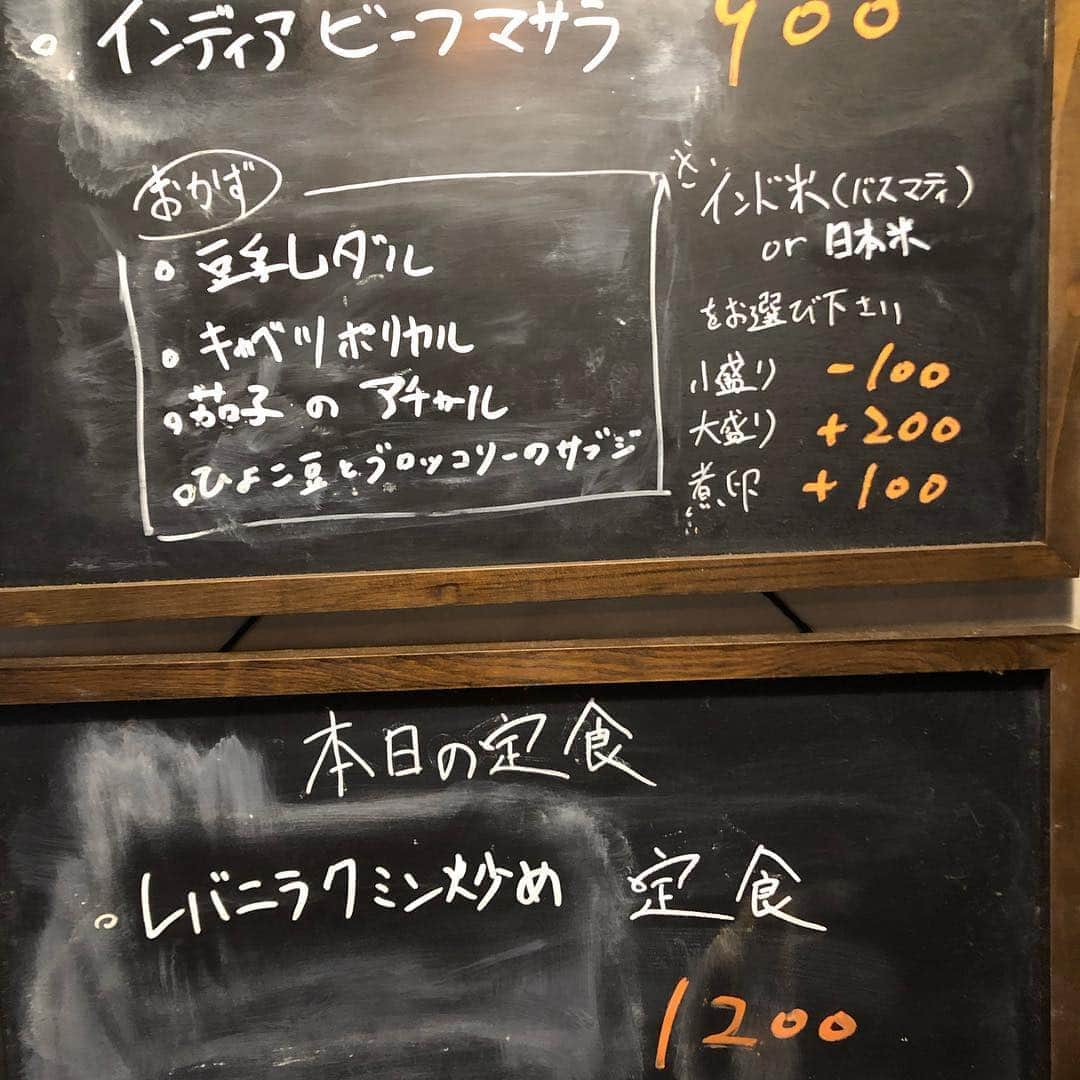 インディア ビーフマサラ 900
おかず
豆乳ダル
キャベツポリヤル
茄子の アチャール
ひよこ豆とブロッコリーのサブジ
インド米(バスマティ)
or 日本米
をお選び下さい
小盛り -100
大盛り +200
煮卵 +100
本日の定食
レバニラクミン炒め 定食
1200